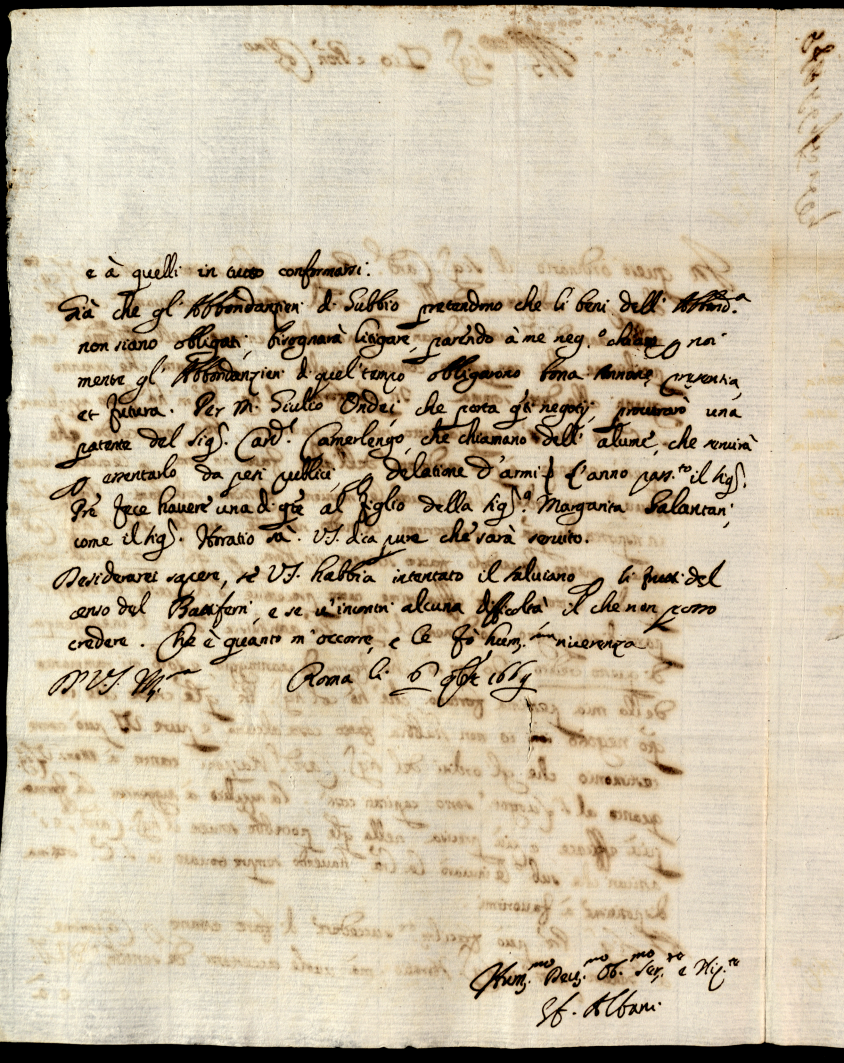 e à quelli in tutto conformarsi.
Già che gl'Abbondanzieri di Gubbio pretendono che li beni dell'Abbond.ª
non siano obligati, bisognarà litigare, parendo à me neg.º chiaro
mente gl'Abbondanzieri di quel tempo obligarono bona Annonæ presentia,
et futura. Per M. Giulio Ondei, che porta q̃ti negotij, procurarò una
patente del Sig.r Card.l Camerlengo, che chiamano dell'alume, che servirà
p esentarlo da pesi publici, p delatione d'armi l'anno pass.to il Sig.r
Pre fece havere una di q̃te al figlio della Sig.ª Margarita Galantari,
come il Sig.r Horatio sà. VS. dica pure che sarà servito.
Desiderarei sapere, se VS. habbia intentato il salviano p li frutti del
censo del Battiferri, e se v'incontri alcuna difficoltà il che non posso
credere. Che è quanto m'occorre, e le fò hum.ma riverenza
D VS. M.
Roma li 6 9bre 1669
Hum.mo Dev.mo Ob.mo Ser.re e Nip.te
Gf. Albani